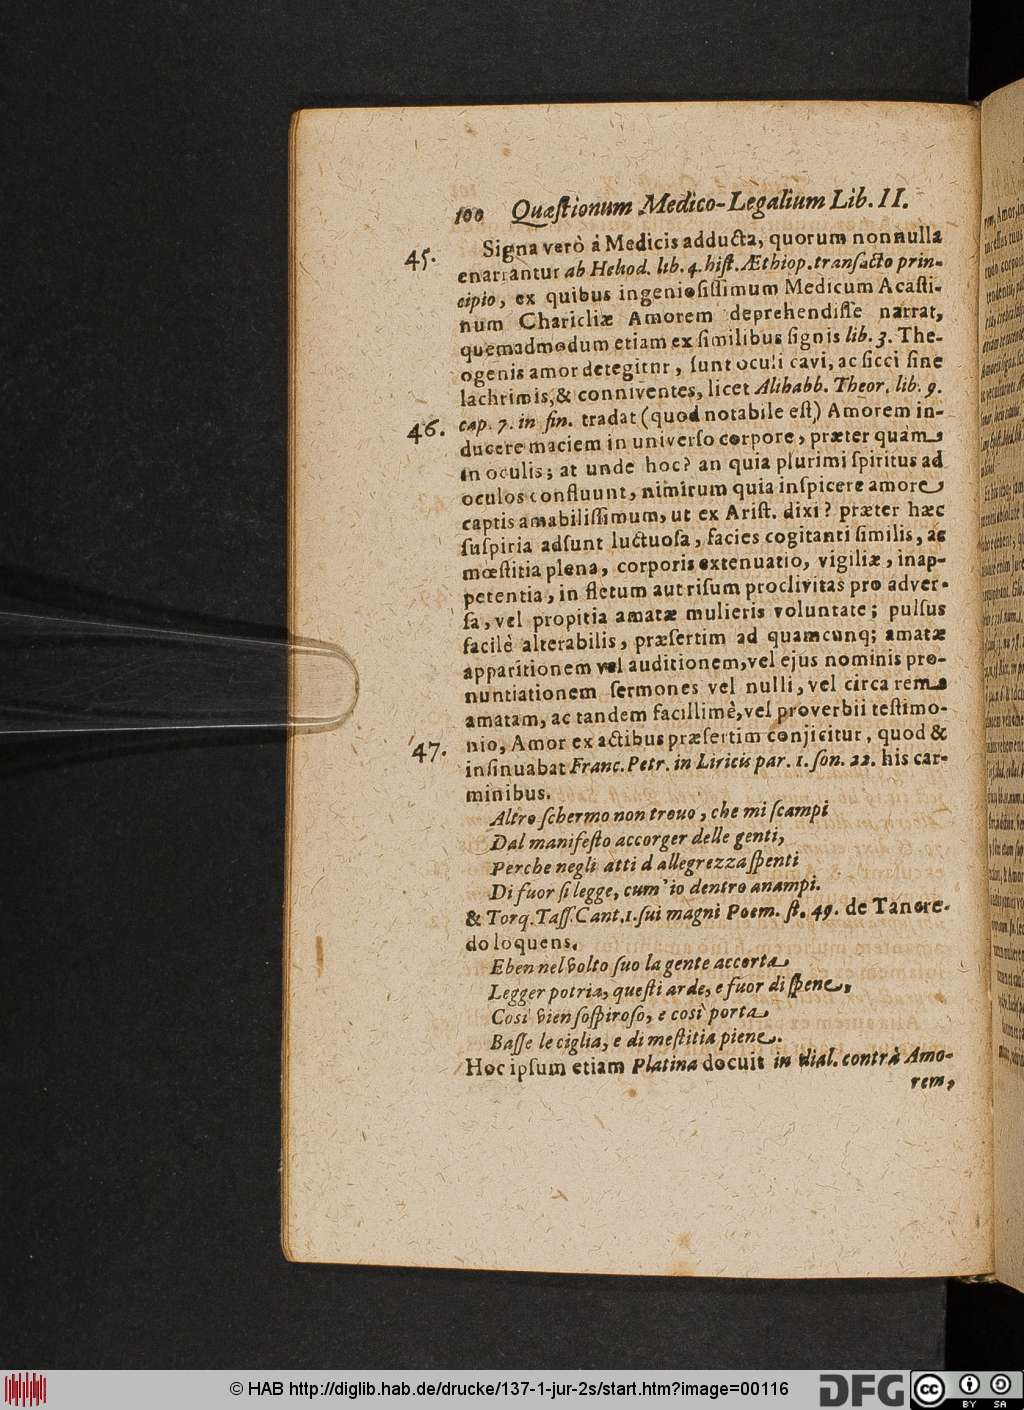 100 Quæſtionum Medico-Legalium Lib. II.
45. Signa verò á Medicis adducta, quorum nonnulla
enarrantur ab Heliod. lib. 4. hiſt. Æthiop. tranſacto prin-
cipio, ex quibus ingenioſiſſimum Medicum Acaſti-
num Charicliæ Amorem deprehendiſſe narrat,
quemadmodum etiam ex ſimilibus ſignis lib. 3. The-
ogenis amor detegitur, ſunt oculi cavi, ac ſicci ſine
lachrimis, & conniventes, licet Alihabb. Theor. lib. 9.
46. cap. 7. in fin. tradat (quod notabile eſt) Amorem in-
ducere maciem in univerſo corpore, præter quàm
in oculis; at unde hoc? an quia plurimi ſpiritus ad
oculos confluunt, nimirum quia inſpicere amore
captis amabiliſſimum, ut ex Ariſt. dixi? præter hæc
ſuſpiria adſunt luctuoſa, facies cogitanti ſimilis, ac
mœſtitia plena, corporis extenuatio, vigiliæ, inap-
petentia, in fletum aut riſum proclivitas pro adver-
ſa, vel propitia amatæ mulieris voluntate; pulſus
facilè alterabilis, præſertim ad quamcunq; amatæ
apparitionem vel auditionem, vel ejus nominis pro-
nuntiationem ſermones vel nulli, vel circa rem
amatam, ac tandem facillimè, vel proverbii teſtimo-
47. nio, Amor ex actibus præſertim conjicitur, quod &
inſinuabat Franc. Petr. in Liricis par. 1. ſon. 22. his car-
minibus.
Altro ſchermo non trouo, che mi ſcampi
Dal manifeſto accorger delle genti,
Perche negli atti d allegrezza ſpenti
Di fuor ſi legge, cum'io dentro anampi.
& Torq. Taſſ. Cant. 1. ſui magni Poem. ſt. 49. de Tancre-
do loquens.
Eben nel volto ſuo la gente accorta
Legger potria, queſti arde, e fuor di ſpene,
Cosi vien ſoſpiroſo, e così porta
Baſſe le ciglia, e di meſtitia piene.
Hoc ipſum etiam Platina docuit in dial. contrà Amo-
rem,
© HAB http://diglib.hab.de/drucke/137-1-jur-2s/start.htm?image=00116
DFG
cc BY SA